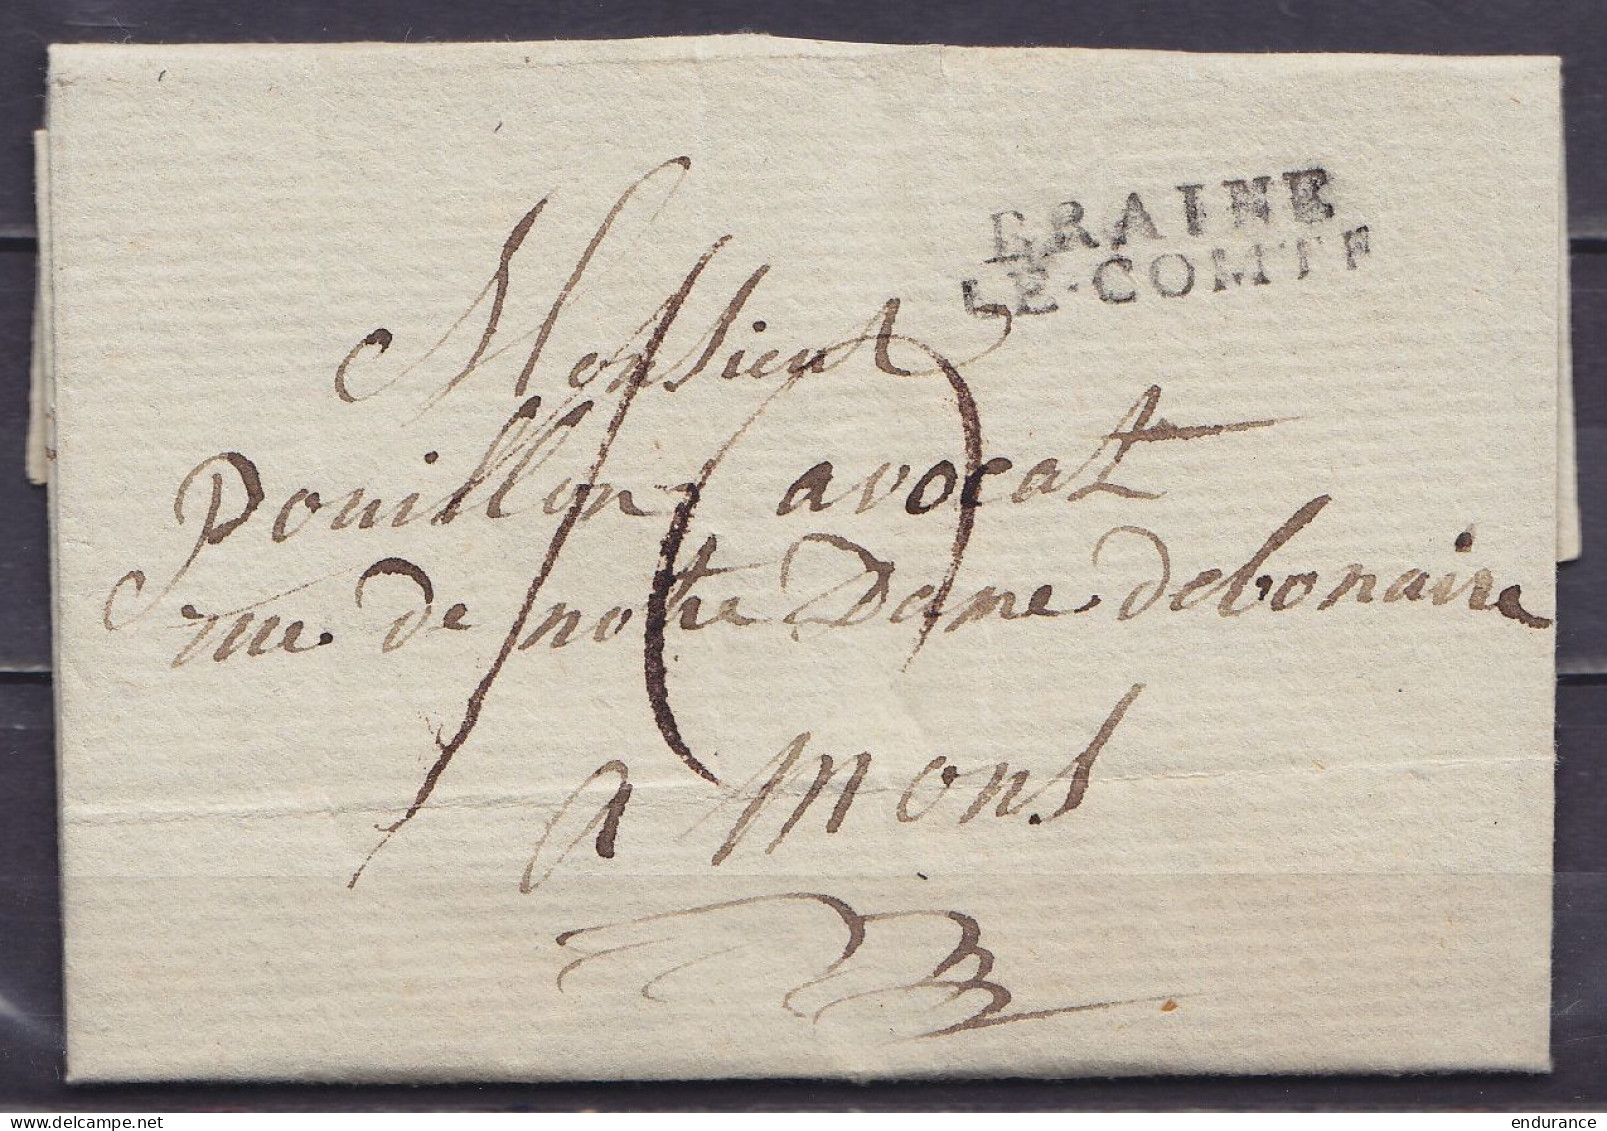 BRAINE
LE-COMTE
Monsieur
Pouillon avocat
rue de notre Dame debonaire
a mons
endurance